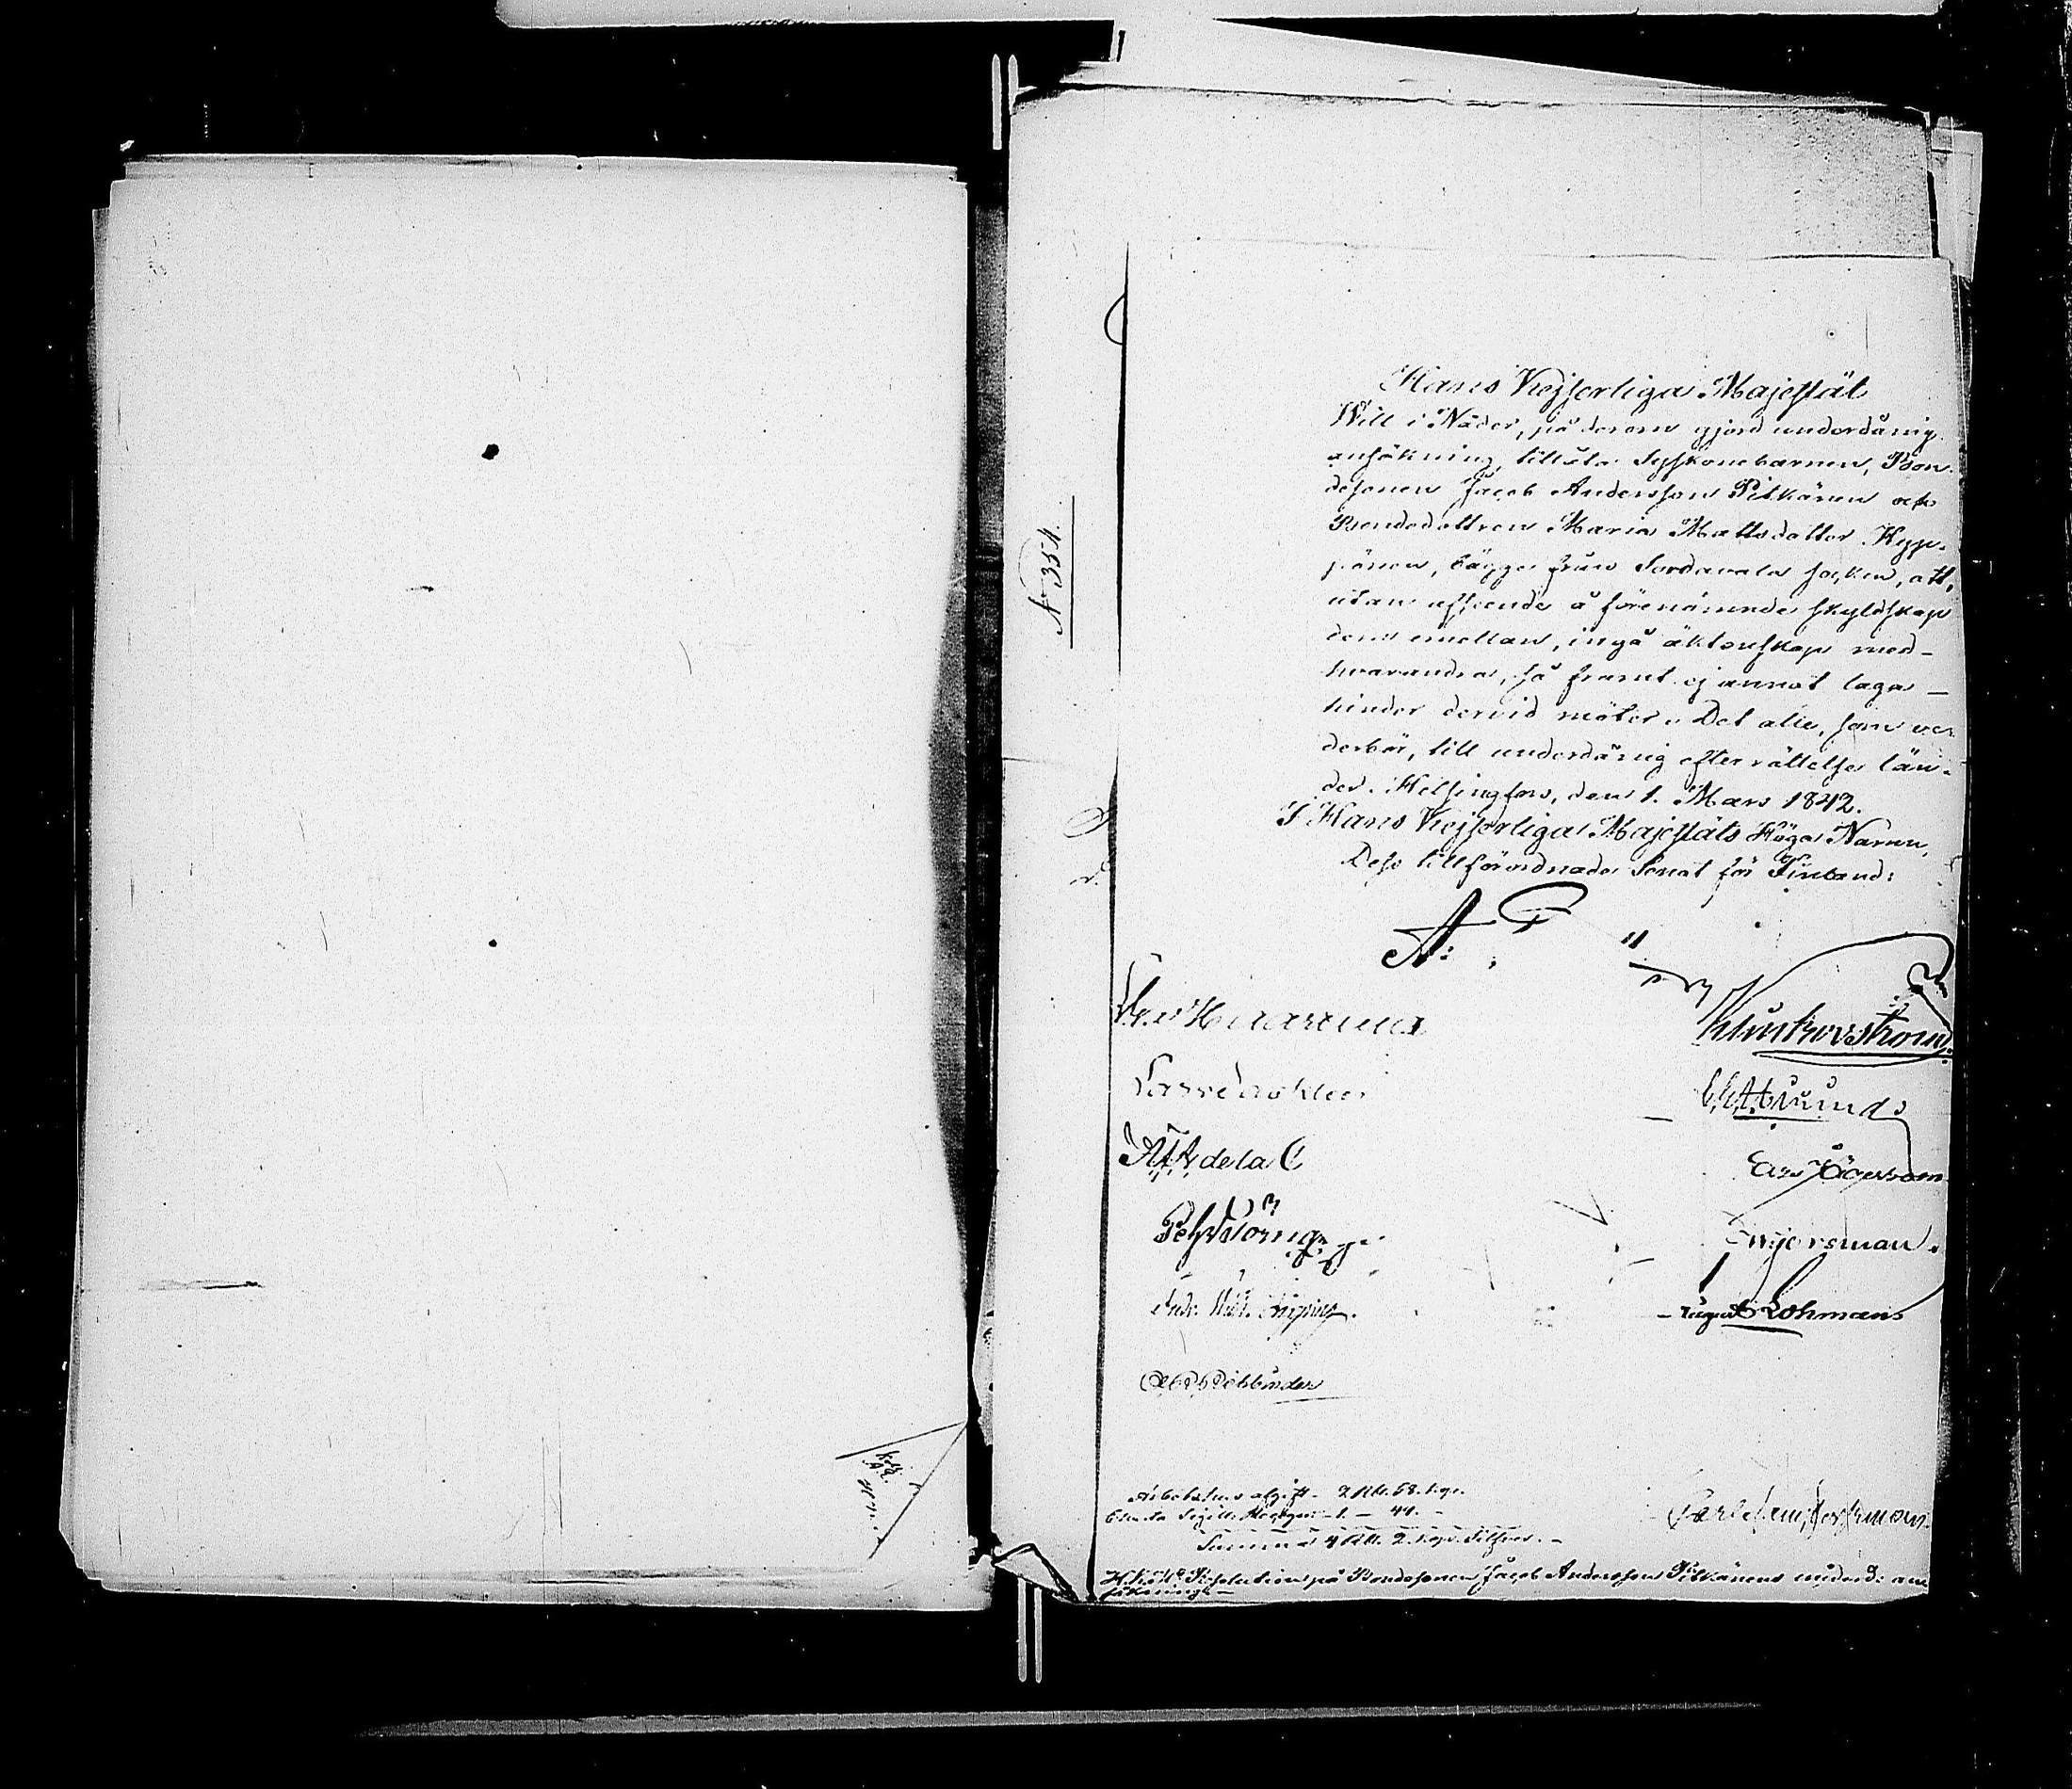 N:o 354.
Hans Kejserliga Majestät
Will i Nåder, på derom gjord underdånig
ansökning, tillåta Syskonebarnen, Bon-
desonen Jacob Andersson Pitkänen och
Bondedottren Maria Mattsdotter Kepp-
pänen, bägge från Sordavala socken, att,
utan afseende å förenämnde skyldskap
dem emellan, ingå äktenskap med
hvarandra, så framt ej annat laga
hinder dervid möter. Det alle, som ve-
derbör, till underdånig efterrättelse län-
der. Helsingfors, den 1. Mars 1842.
I Hans Kejserliga Majestäts Höga Namn,
Dess tillförordnade Senat för Finland:
Klinckowström
de la C
August Lohman
Rehbinder
Arbetshus afgift 2 Rbl. 58. kop.
Charta Sigill. Rekogn. 1. — 44. —
Summa 4 Rbl. 2. kop. Silfver. —
H. K. M:s Resolution på Bondesonen Jacob Andersson Pitkänens underd: an-
sökning. —